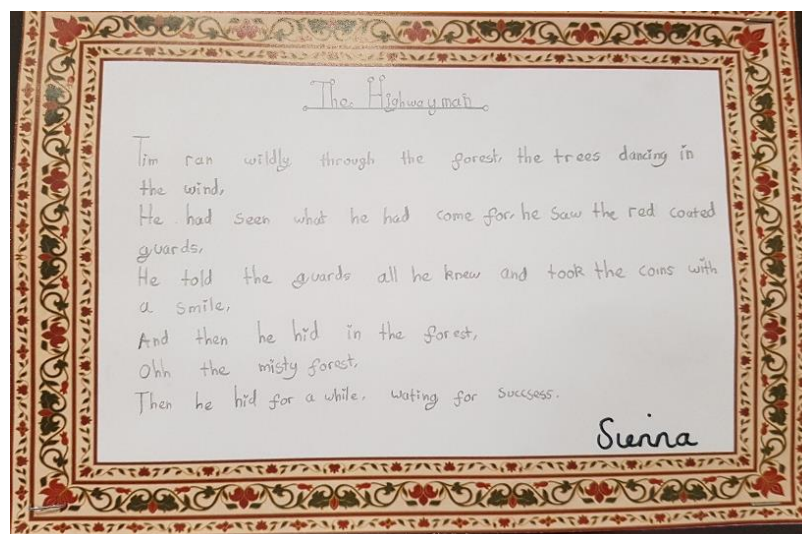 The Highwayman
Tim ran wildly through the forest, the trees dancing in
the wind,
He had seen what he had come for, he saw the red coated
guards,
He told the guards all he knew and took the coins with
a smile,
And then he hid in the forest,
Ohh the misty forest,
Then he hid for a while. wating for succsess.
Sienna